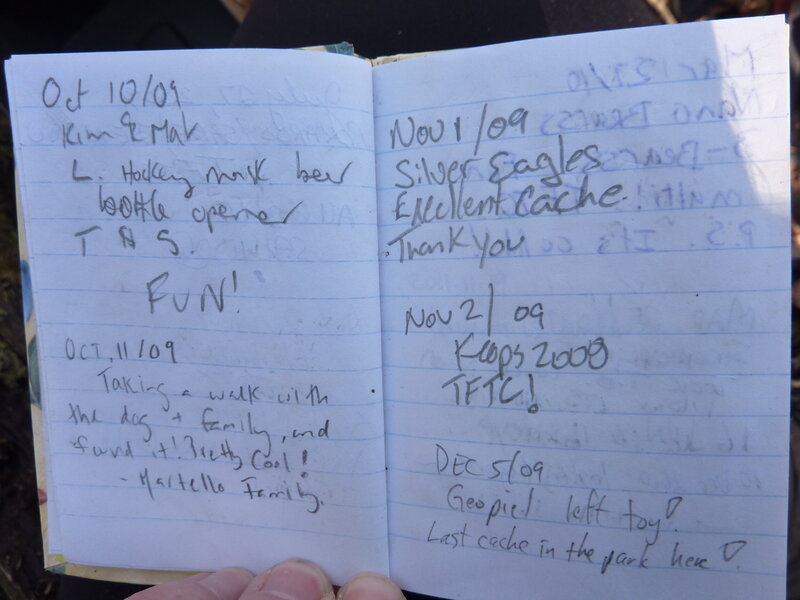 Oct 10/09
Kim & Mat
L. Hockey mask beer
bottle opener
T
S.
FUN!
OCT, 11/09
Taking a walk with
the dog + family, and
found it! Pretty Cool!
- Martello Family.
Nov 1/09
Silver Eagles
Excellent Cache.
Thank you
Nov 2/09
Kcops 2008
TFTC!
DEC 5/09
Geopie! left toy!
Last cache in the park here
Mar 27/10
Nano
P.S. "It's